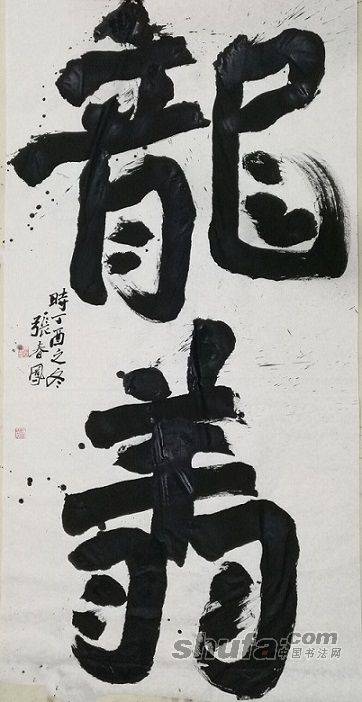 龍翔
時丁酉之冬
張春鳳
shufa.com
中国书法网